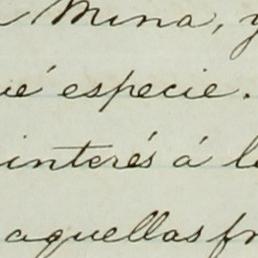 Mina, y
ué especie.
interés á l
aquellas fr